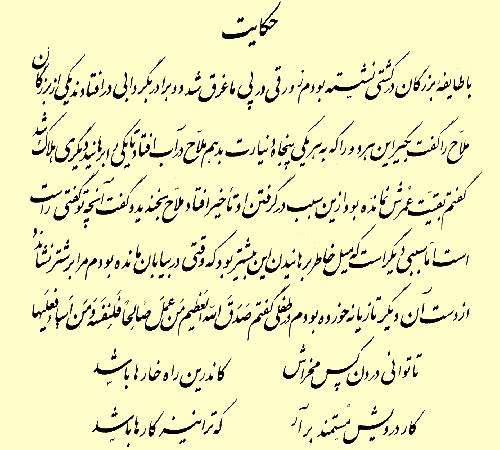 حکایت
با طایفهٔ بزرگان در کشتی نشسته بودم زورقی در پی ما غرق شد دو برادر بگردابی در افتادند یکی از بزرگان
ملاح را گفت بگیر این هر دو را که به هر یکی پنجاه دینارت بدهم ملاح در آب افتاد تا یکی را برهانید دیگری هلاک شد
گفتم بقیت عمرش نمانده بود ازین سبب در گرفتن او تأخیر افتاد ملاح بخندید و گفت آنچه تو گفتی راست
است اما سببی دیگر است که میل خاطر برهانیدن این بیشتر بود که وقتی در بیابان مانده بودم مرا بر شتر نشاند و
از دست آن دیگر تازیانه خورده بودم در طفلی گفتم صَدَقَ اللهُ العَظیم مَن عَمِلَ صالِحاً فَلِنَفسِهِ وَ مَن أساءَ فَعَلَیها
تا توانی درون کس مخراش کاندرین راه خارها باشد
کار درویش مستمند برآر که ترا نیز کارها باشد